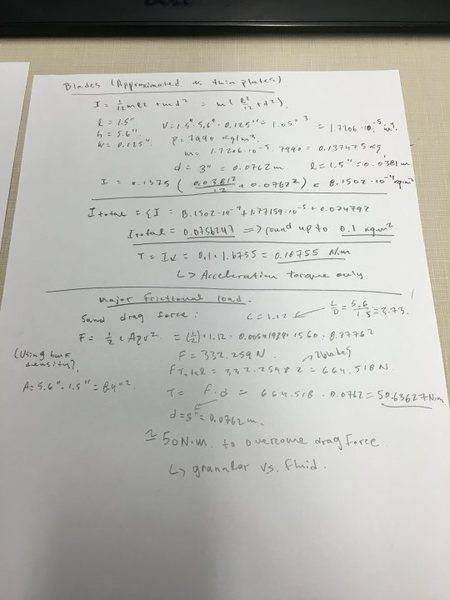 Blades (Approximated as thin plates).
I = 1/12 ml² + md² = m(l²/12 + d²)
l = 1.5" V = 1.5"·5.6"·0.125" = 1.05"³ = 1.7206·10⁻⁵ m³
h = 5.6" ρ = 7990 kg/m³
w = 0.125" m = 1.7206·10⁻⁵ · 7990 = 0.137475 kg
d = 3" = 0.0762 m l = 1.5" = 0.0381 m
I = 0.1375 (0.0381²/12 + 0.0762²) = 8.1502·10⁻⁴ kgm²
I total = ΣI = 8.1502·10⁻⁴ + 1.77159·10⁻⁵ + 0.074792
I total = 0.0756247 => round up to 0.1 kgm²
T = Iα = 0.1 · 1.6755 = 0.16755 N·m
↳ Acceleration torque only.
Major frictional load.
Sand drag force: C = 1.12 L/D = 5.6/1.5 = 3.73.
F = 1/2 c Aρv² = (1/2)·1.12·0.00541934·1560·8.7776²
F = 332.259 N.
(Using bulk density). 2 blades
F Total = 332.259·2 = 664.518 N.
A = 5.6"·1.5" = 8.4"²
T = F·d = 664.518 · 0.0762 = 50.63627 N·m
d = 3" = 0.0762 m.
≈ 50 N·m. to overcome drag force
↳ granular vs. fluid.